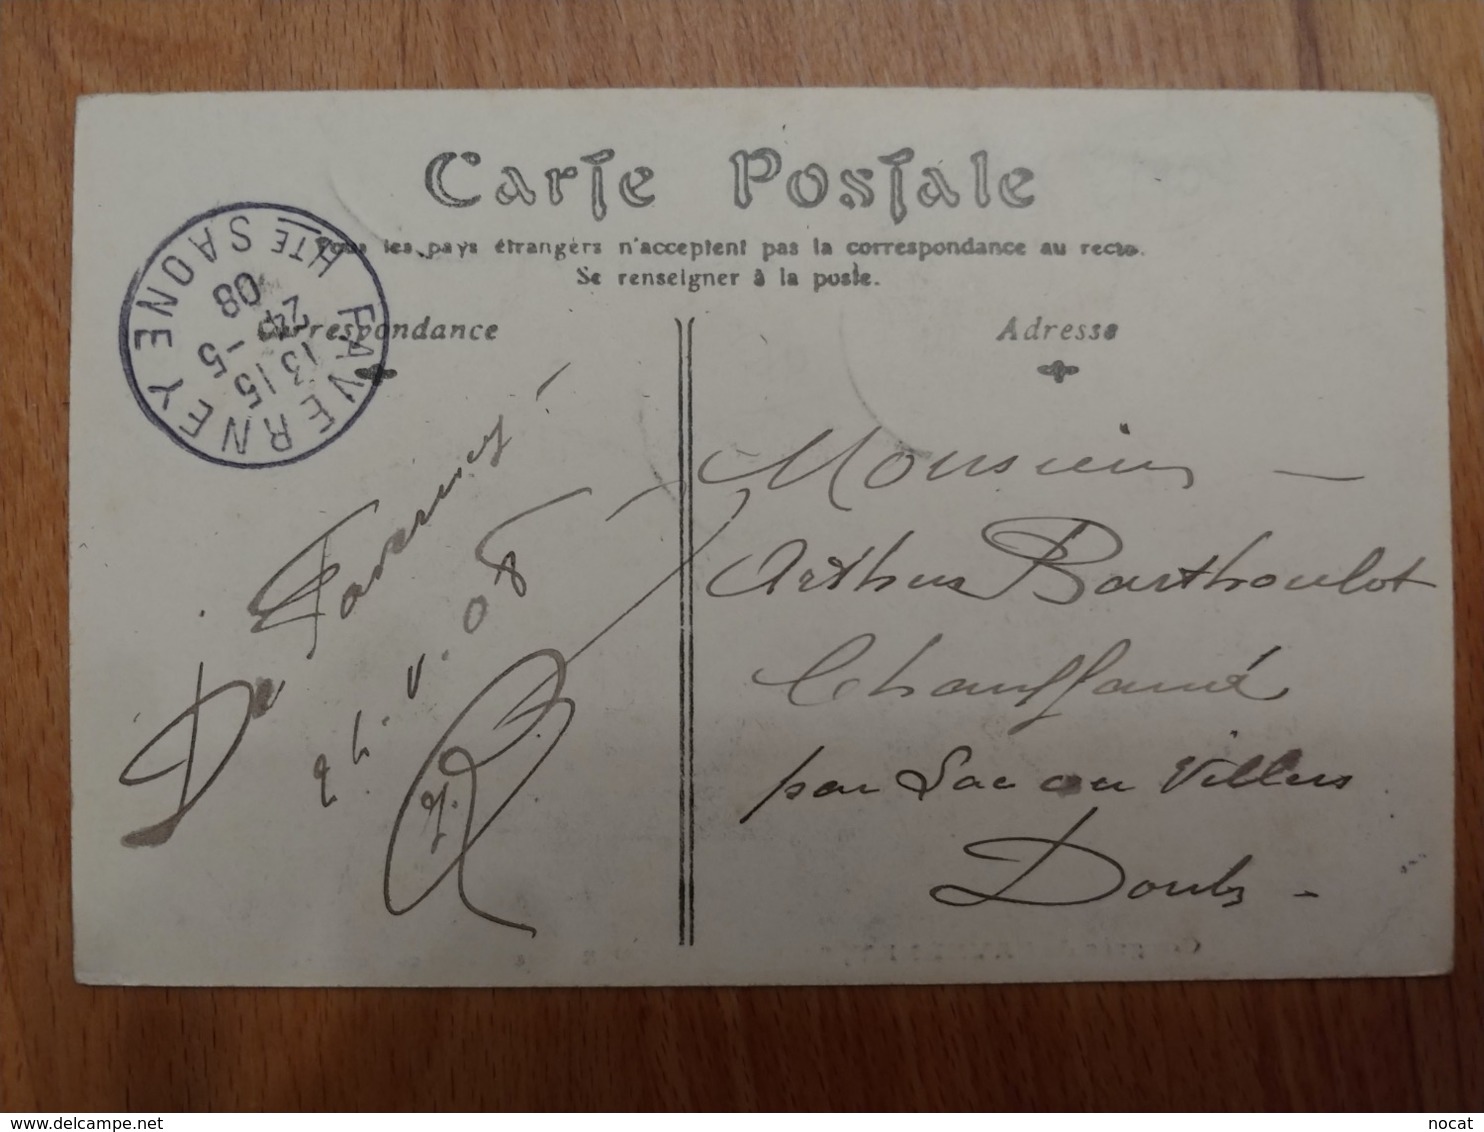 Carte Postale
Tous les pays étrangers n'acceptent pas la correspondance au recto.
Se renseigner à la poste.
Correspondance
Adresse
FAVERNEY HTE SAONE
13 15
24 - 5
08
De Faverney -
24. V. 08
Monsieur -
Arthur Barthoulot
Chauffaud
par Lac ou Villers
Doubs -
nocat